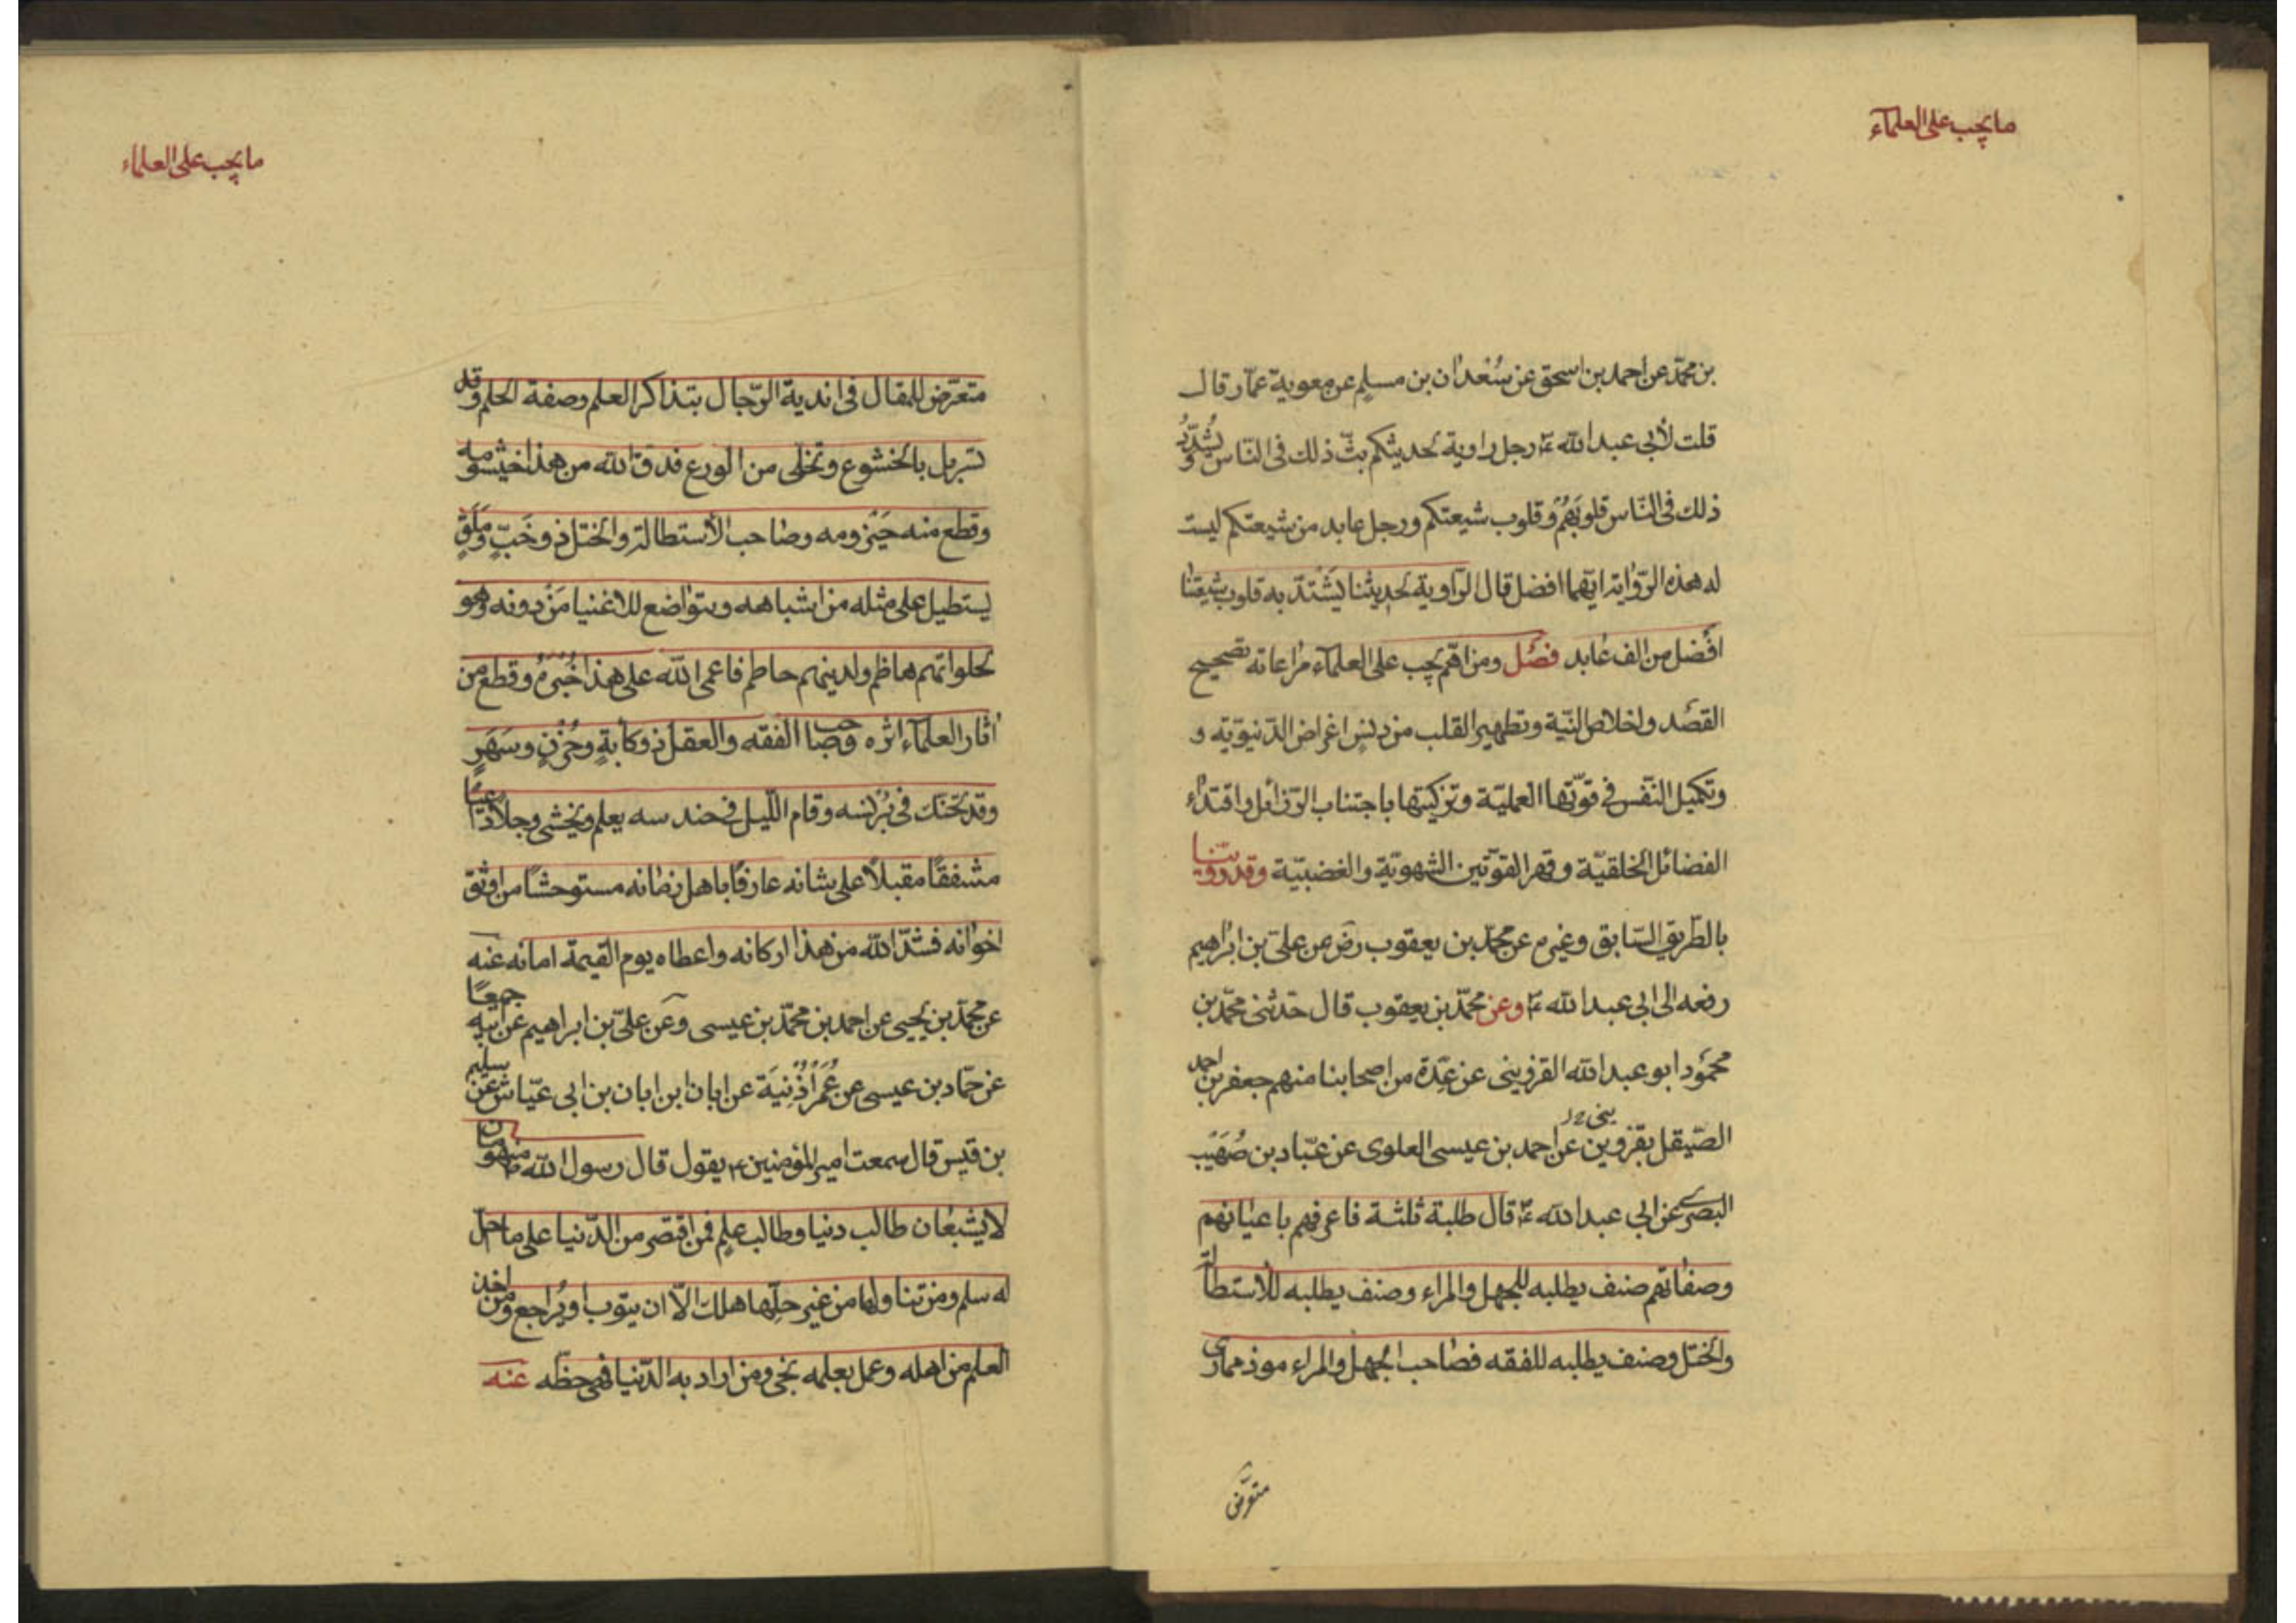 ما يجب على العلمآء
بن محمّد عن احمد بن اسحق عن سُعْدان بن مسلم عن معوية عمّار قال
قلت لأبى عبد الله ع رجل راوية لحديثكم بثّ ذلك فى النّاس ويُشدّدُ
ذلك فى النّاس قلوبَهُمْ وقلوب شيعتكم ورجل عابد من شيعتكم ليست
له هذه الرّواية ايّهما افضل قال الرّاوية لحديثنا يَشْتدّ به قلوب شيعتنا
افْضل من الف عابد فصْل ومن اهمّ يجب على العلمآء مراعاته تصحيح
القصْد واخلاص النّية وتطهير القلب من دنس اغراض الدّنيوّية و
وتكميل النّفس فى قوّتها العمليّة وتزكيتها باجتناب الرّذائل واقتداء
الفضائل الخلقيّة وقهر القوّتين الشهويّة والغضبيّة وقد روّينا
بالطّريق السّابق وغيره عن محمّد بن يعقوب رض عن علىّ بن ابراهيم
رفعه الى ابى عبد الله ع وعن محمّد بن يعقوب قال حدّثنى محمّد بن
محمُود ابو عبد الله القزوينى عن عِدّة من اصحابنا منهم جعفر بن احمد
الصّيقل بقزوين عن احمد بن عيسى العلوى عن عبّاد بن صُهَيْب
البصرى عن ابى عبد الله ع قال طلبة ثلثة فاعرفهم باعيانهم
وصفاتهم صنف يطلبه للجهل والمراء وصنف يطلبه للأستطالة
والختل وصنف يطلبه للفقه فصاحب الجهل والمراء موذ ممارى
متعرّض
ما يجب على العلماء
متعرّض للمقال فى اندية الرّجال بتذاكر العلم وصفة الحلم وقد
تسربل بالخشوع وتخلّى من الورع فدقّ الله من هذا خيشومه
وقطع منه حَيْزومه وصاحب الأستطالة والختل ذو خَبّ ومَلَقٍ
يستطيل على مثله من اشباهه ويتواضع للاغنيا مَنْ دونه وهو
لحلواتهم هاظم ولدينهم حاطم فاعمى الله على هذا خُبْرَهُ وقطع من
اثار العلمآء اثره وصاحب الفقه والعقل ذو كابةٍ وحُزْنٍ وسَهَرٍ
وقد تحنّك فى بُرْنسه وقام اللّيل فى حندسه يعلم ويخشى وجلا داعيًا
مشفقًا مقبلاً على شانه عارفًا باهل زمانه مستوحشًا من اوثق
اخوانه فشدّ الله من هذا اركانه واعطاه يوم القيمة امانه عنه
عن محمّد بن يحيى عن احمد بن محمّد بن عيسى وعن علىّ بن ابراهيم عن ابيه جميعًا
عن حمّاد بن عيسى عن عُمَرَ اُذْنيَة عن ابان ابن ابان بن ابى عيّاش عن سليم
بن قيس قال سمعت امير المؤمنين ع يقول قال رسول الله ص منهومان
لا يشبعان طالب دنيا وطالب علم فمن اقتصر من الدّنيا على ما احلّ
له سلم ومن تناولها من غير حلّها هلك الاّ ان يتوب او يُراجع ومن اخذ
العلم من اهله وعمل بعلمه نجى ومن اراد به الدّنيا فهى حظّه عنه